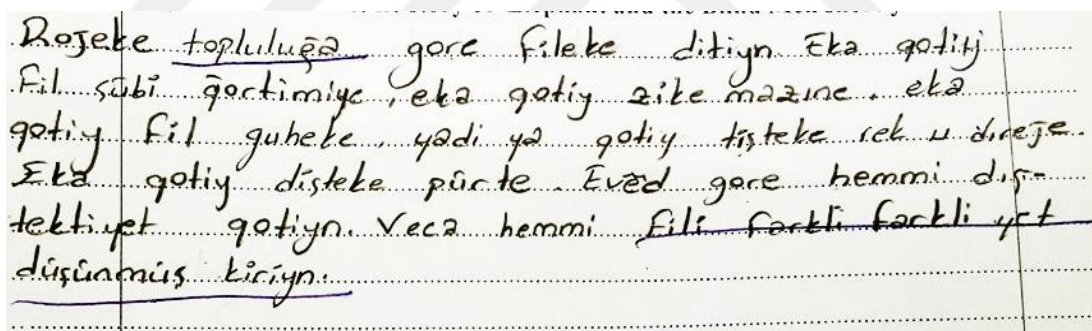 Rojeke topluluğa gore fileke ditiyn Eka gotiy
Fil şûbi gortimiye, eka gotiy zike mazine. eka
gotiy fil guheke, yadi ya gotiy tişteke rek u direje.
Eka gotiy dişteke pûrte. Evêd gore hemmi diş-
tektiyet gotiyn. Veca hemmi fili farkli farkli yet
düşünmüş kiriyn.